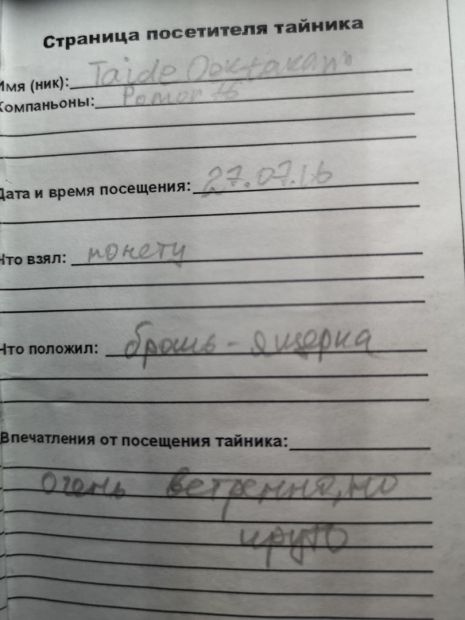 Страница посетителя тайника
Имя (ник):
Компаньоны: Pomor
Дата и время посещения: 27.07.16
Что взял: монету
Что положил: брошь - ящерка
Впечатления от посещения тайника:
очень ветренно, но
круто